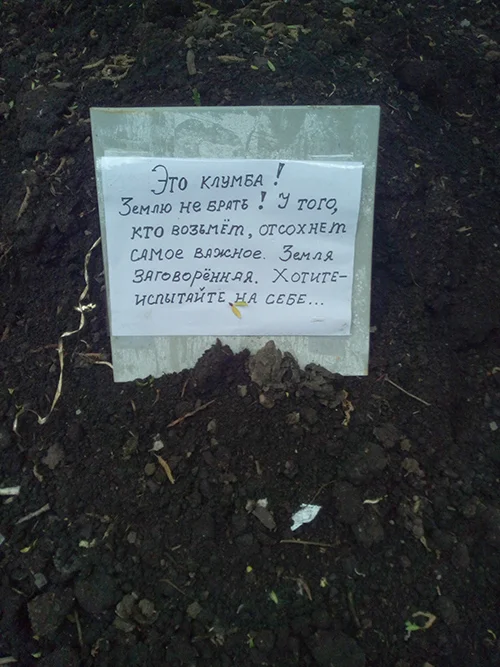 Это клумба!
Землю не брать! У того,
кто возьмёт, отсохнет
самое важное. Земля
заговорённая. Хотите-
испытайте на себе...